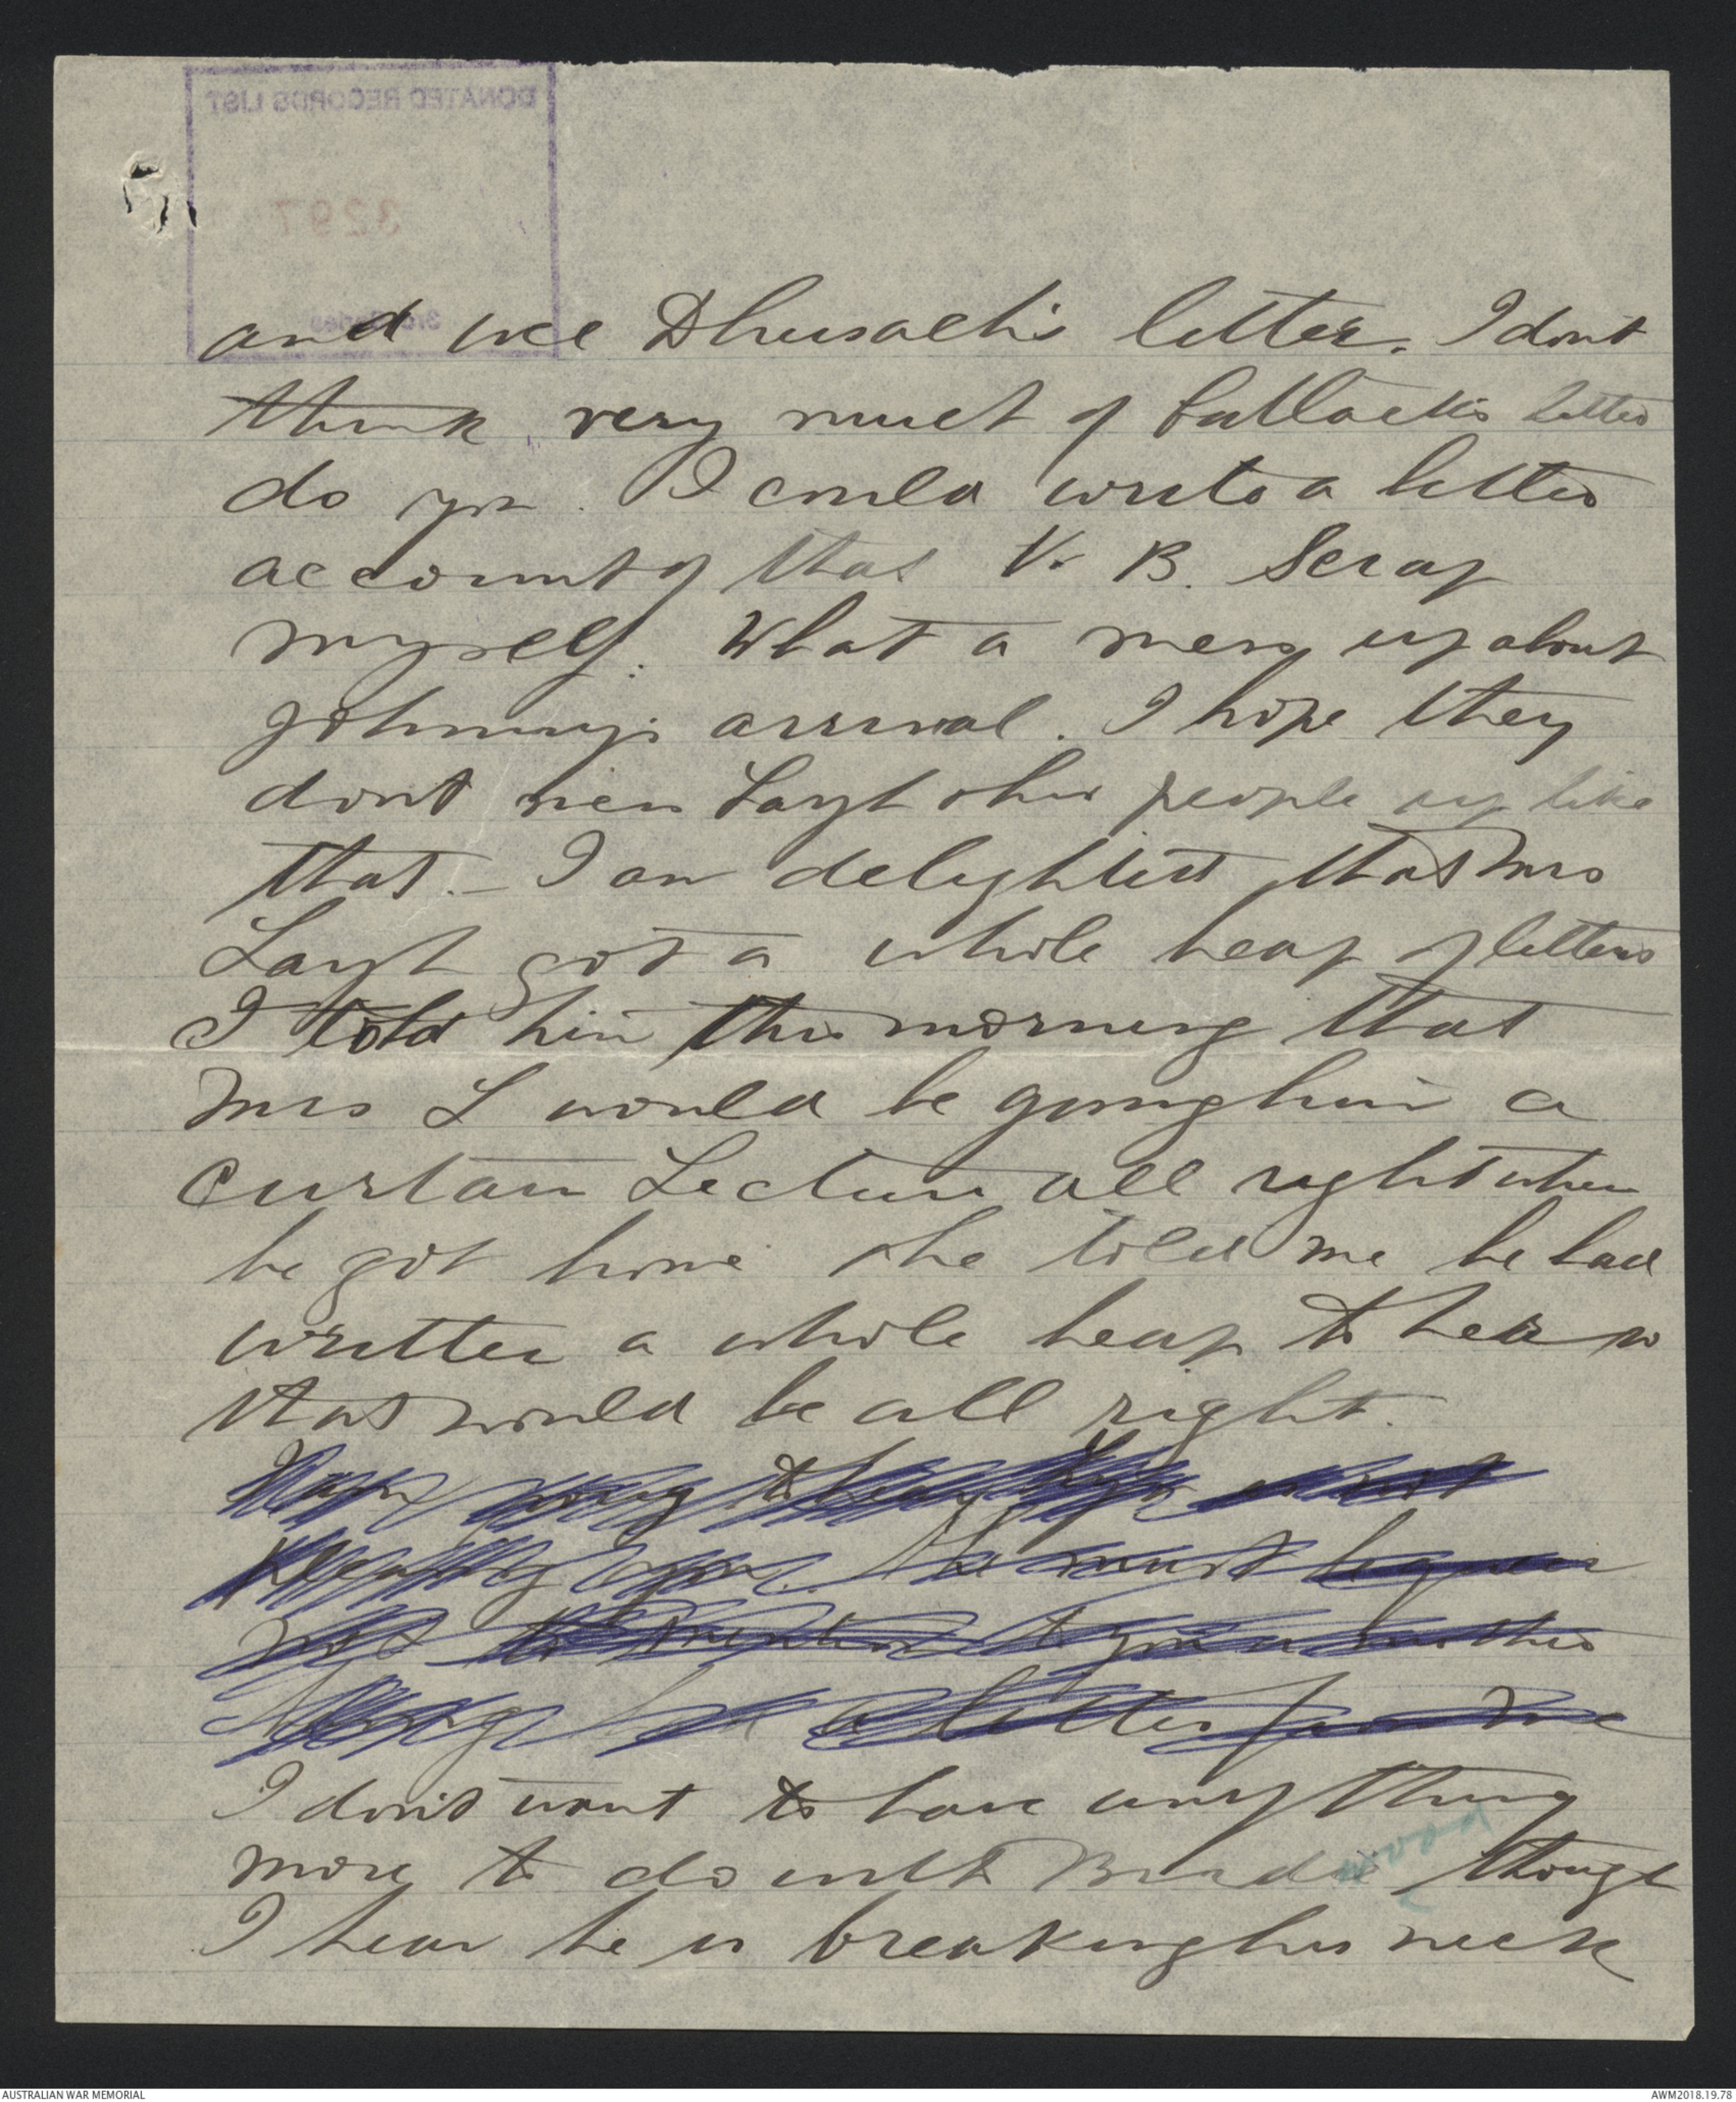 DONATED RECORDS LIST
3297
3rd Series
and we letter. I dont
think very much of letter
do you. I could write a better
account of that V. B. Scrap
myself. What a mess up about
Johnny's arrival. I hope they
dont mess Layh & his people up like
that. - I am delighted that Mrs
Layh got a whole heap of letters
I told him this morning that
Mrs L would be giving him a
Curtain Lecture all right when
he got home he told me he had
written a whole heap to her so
that would be all right.
going to
you. He must
not to mention to you in another
a letter from me
I don't want to have anything
more to do with Burdwood though
I hear he is breaking his neck
AUSTRALIAN WAR MEMORIAL
AWM2018.19.78